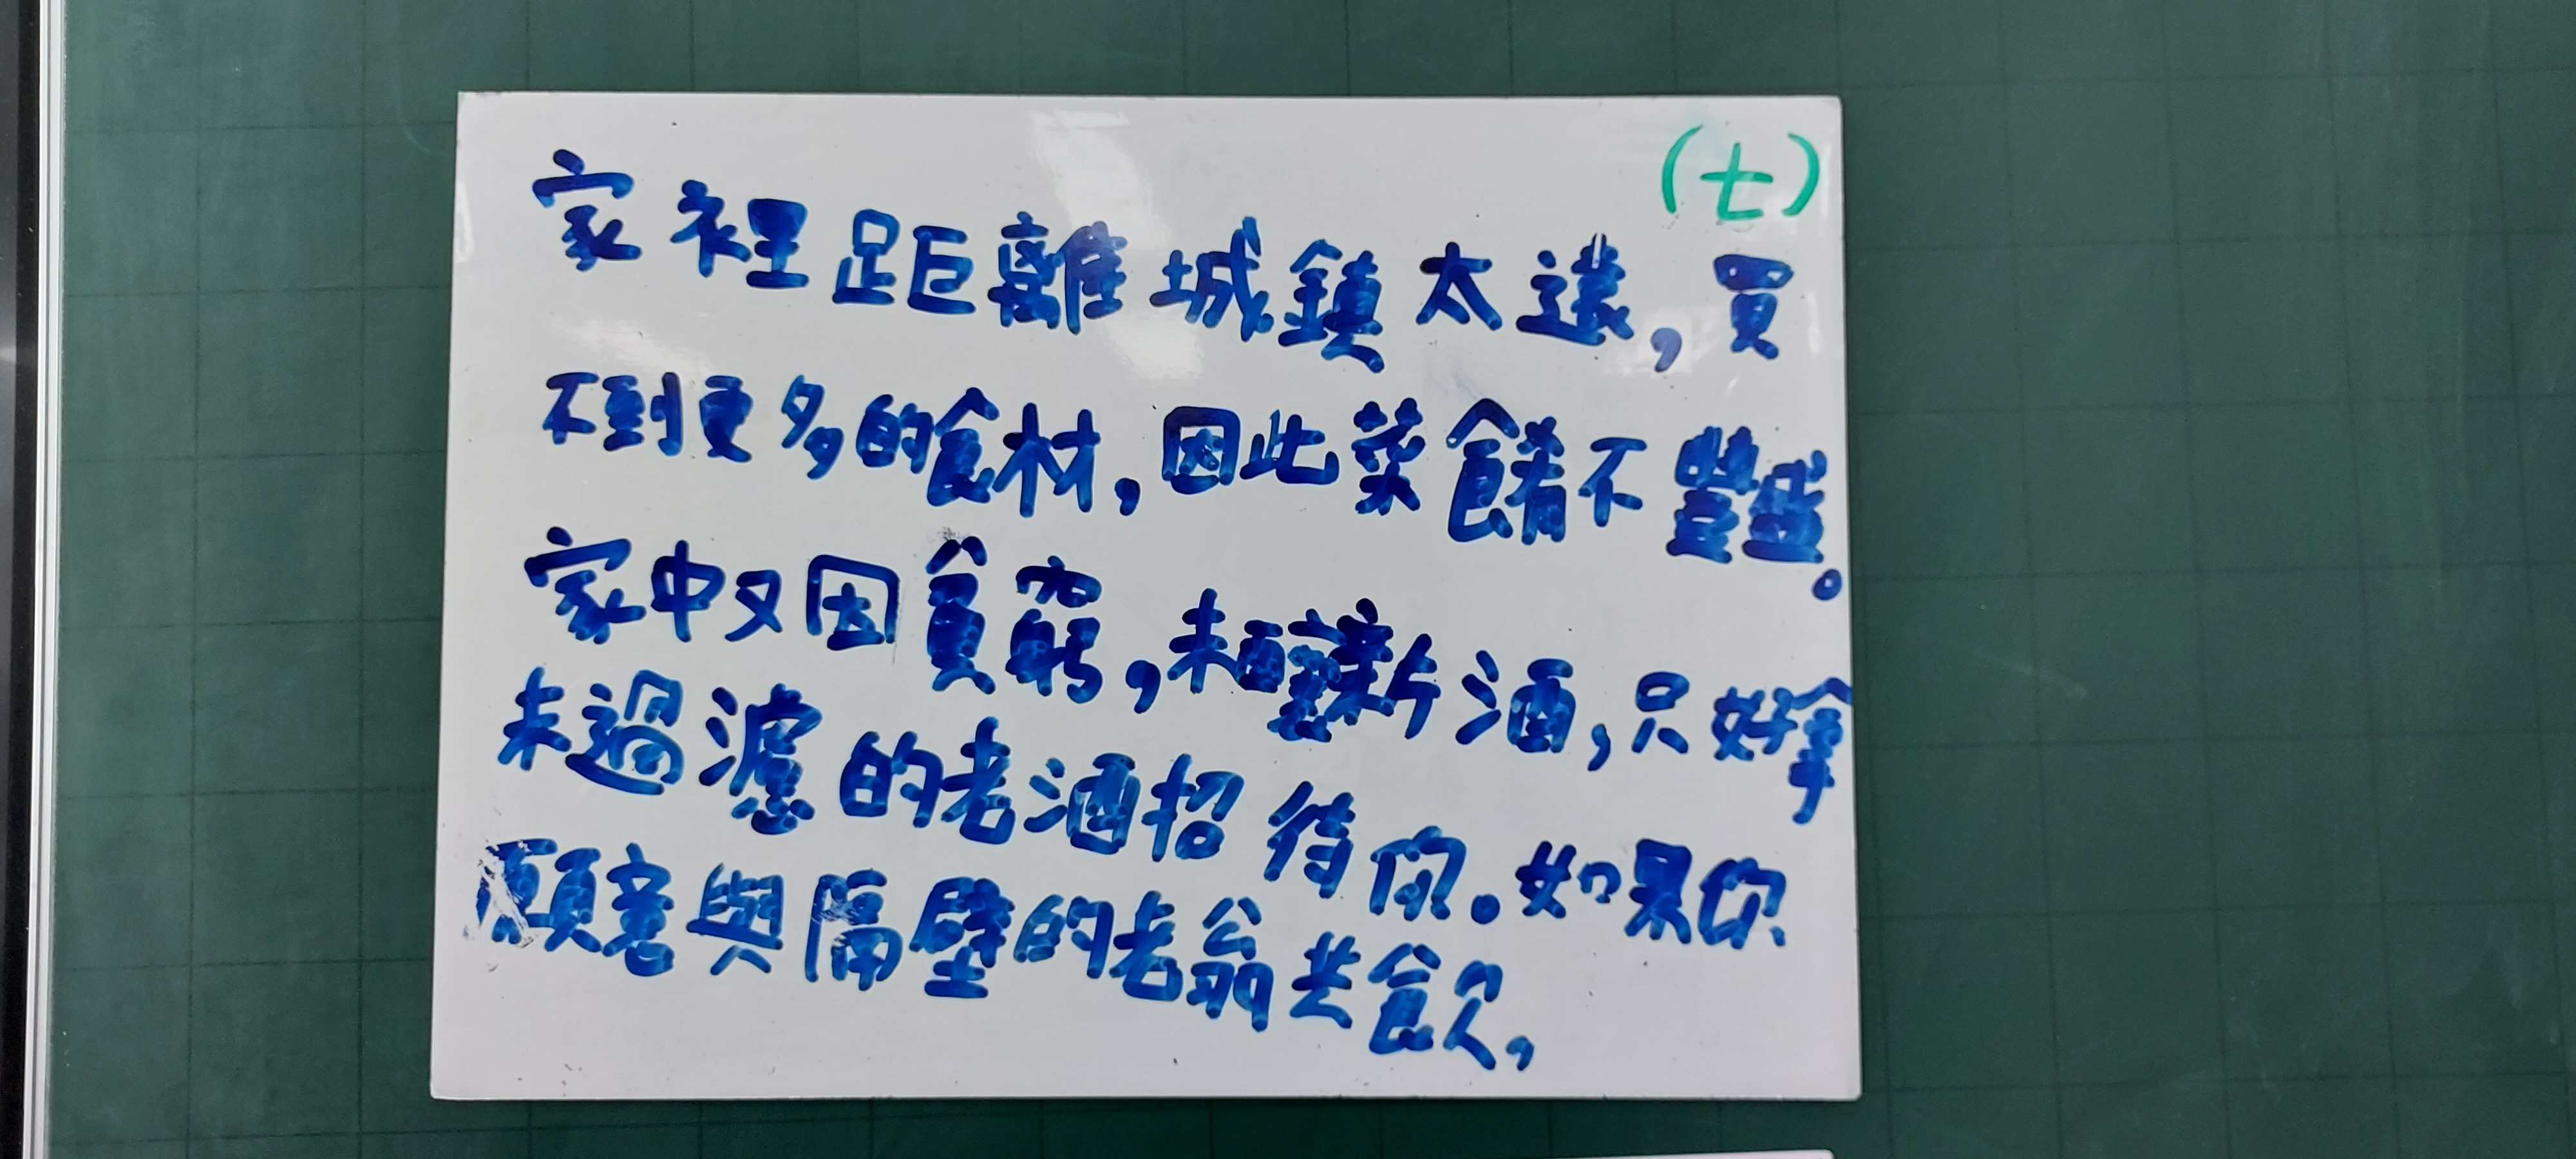 (七)
家裡距離城鎮太遠,買
不到更多的食材,因此菜餚不豐盛。
家中又因貧窮,未釀新酒,只好拿
未過濾的老酒招待你。如果你
願意與隔壁的老翁共飲,